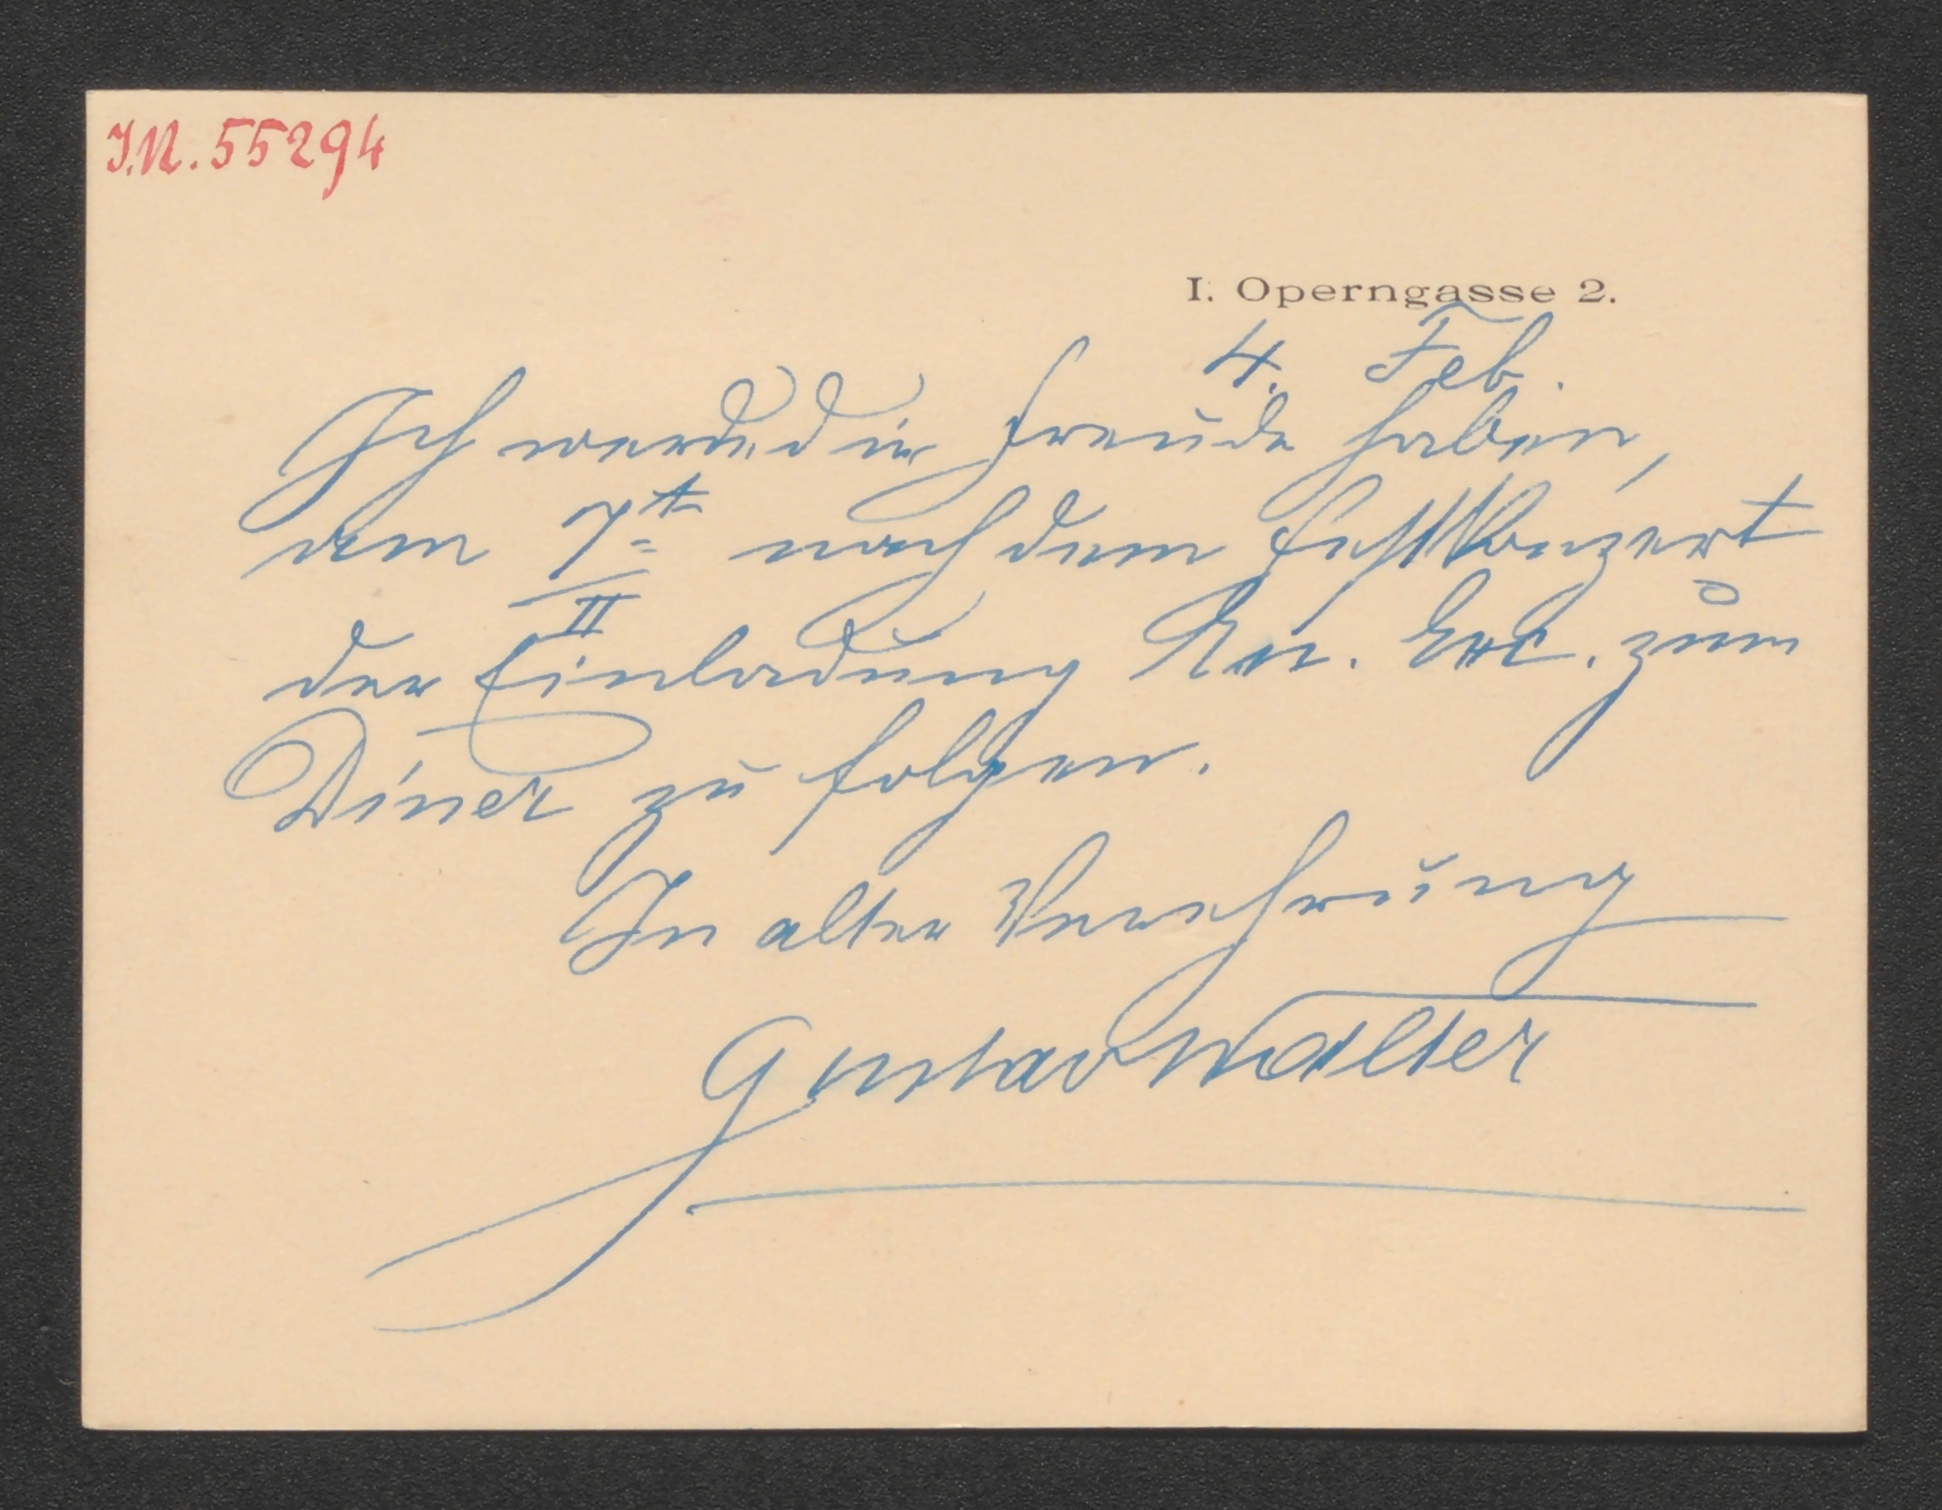 I.N. 55294
I. Operngasse 2.
4. Feb.
Ich werde die Freude haben,
am 7t/II nach dem Festkonzert
der Einladung Eu. Exc. zum
Diner zu folgen.
In alter Verehrung
Gustav Walter